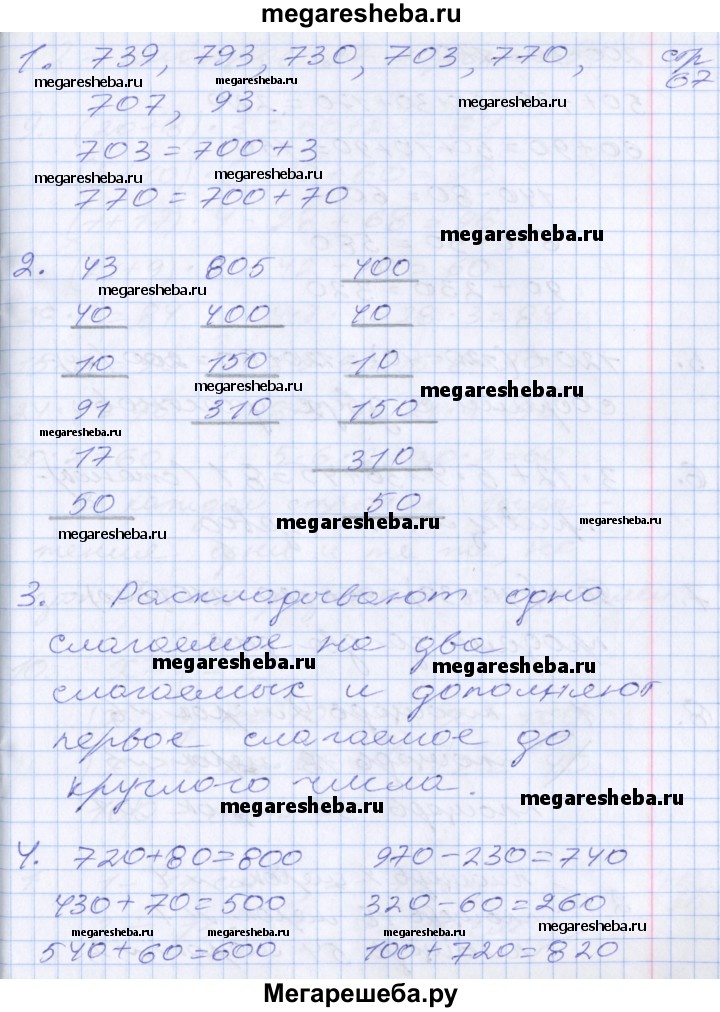 megaresheba.ru
1. 739, 793, 730, 703, 770, стр 67
megaresheba.ru megaresheba.ru
707, 93. megaresheba.ru
703 = 700 + 3
megaresheba.ru megaresheba.ru
770 = 700 + 70
megaresheba.ru
2. 43 805 400
megaresheba.ru
40 400 40
10 150 10
megaresheba.ru megaresheba.ru
91 310 150
megaresheba.ru
17 310
50 50
megaresheba.ru megaresheba.ru
3. Раскладывают одно
слагаемое на два
megaresheba.ru megaresheba.ru
слагаемых и дополняют
первое слагаемое до
круглого числа.
megaresheba.ru megaresheba.ru
4. 720+80=800 970-230=740
430+70=500 320-60=260
megaresheba.ru megaresheba.ru megaresheba.ru
540+60=600 100+720=820
Мегарешеба.ру